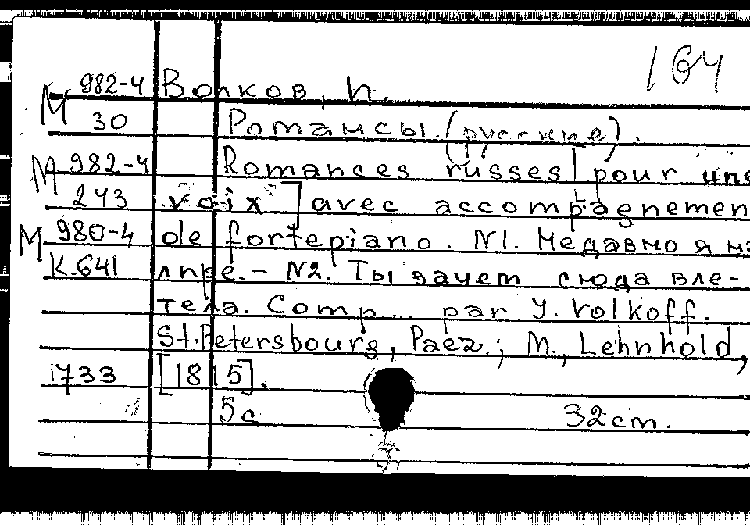 164
М 982-4 Волков, И.
30 Романсы (русские).
М 982-4 Romances russes [pour une
243 voix] avec accompagnemen
М 980-4 de fortepiano. N1. Недавно я на
К-641 лире. - N2. Ты зачем сюда вле-
тела. Comp... par J. Volkoff.
St.Petersbourg, Paez.; M., Lehnhold,
1733 [1815].
5с 32cm.